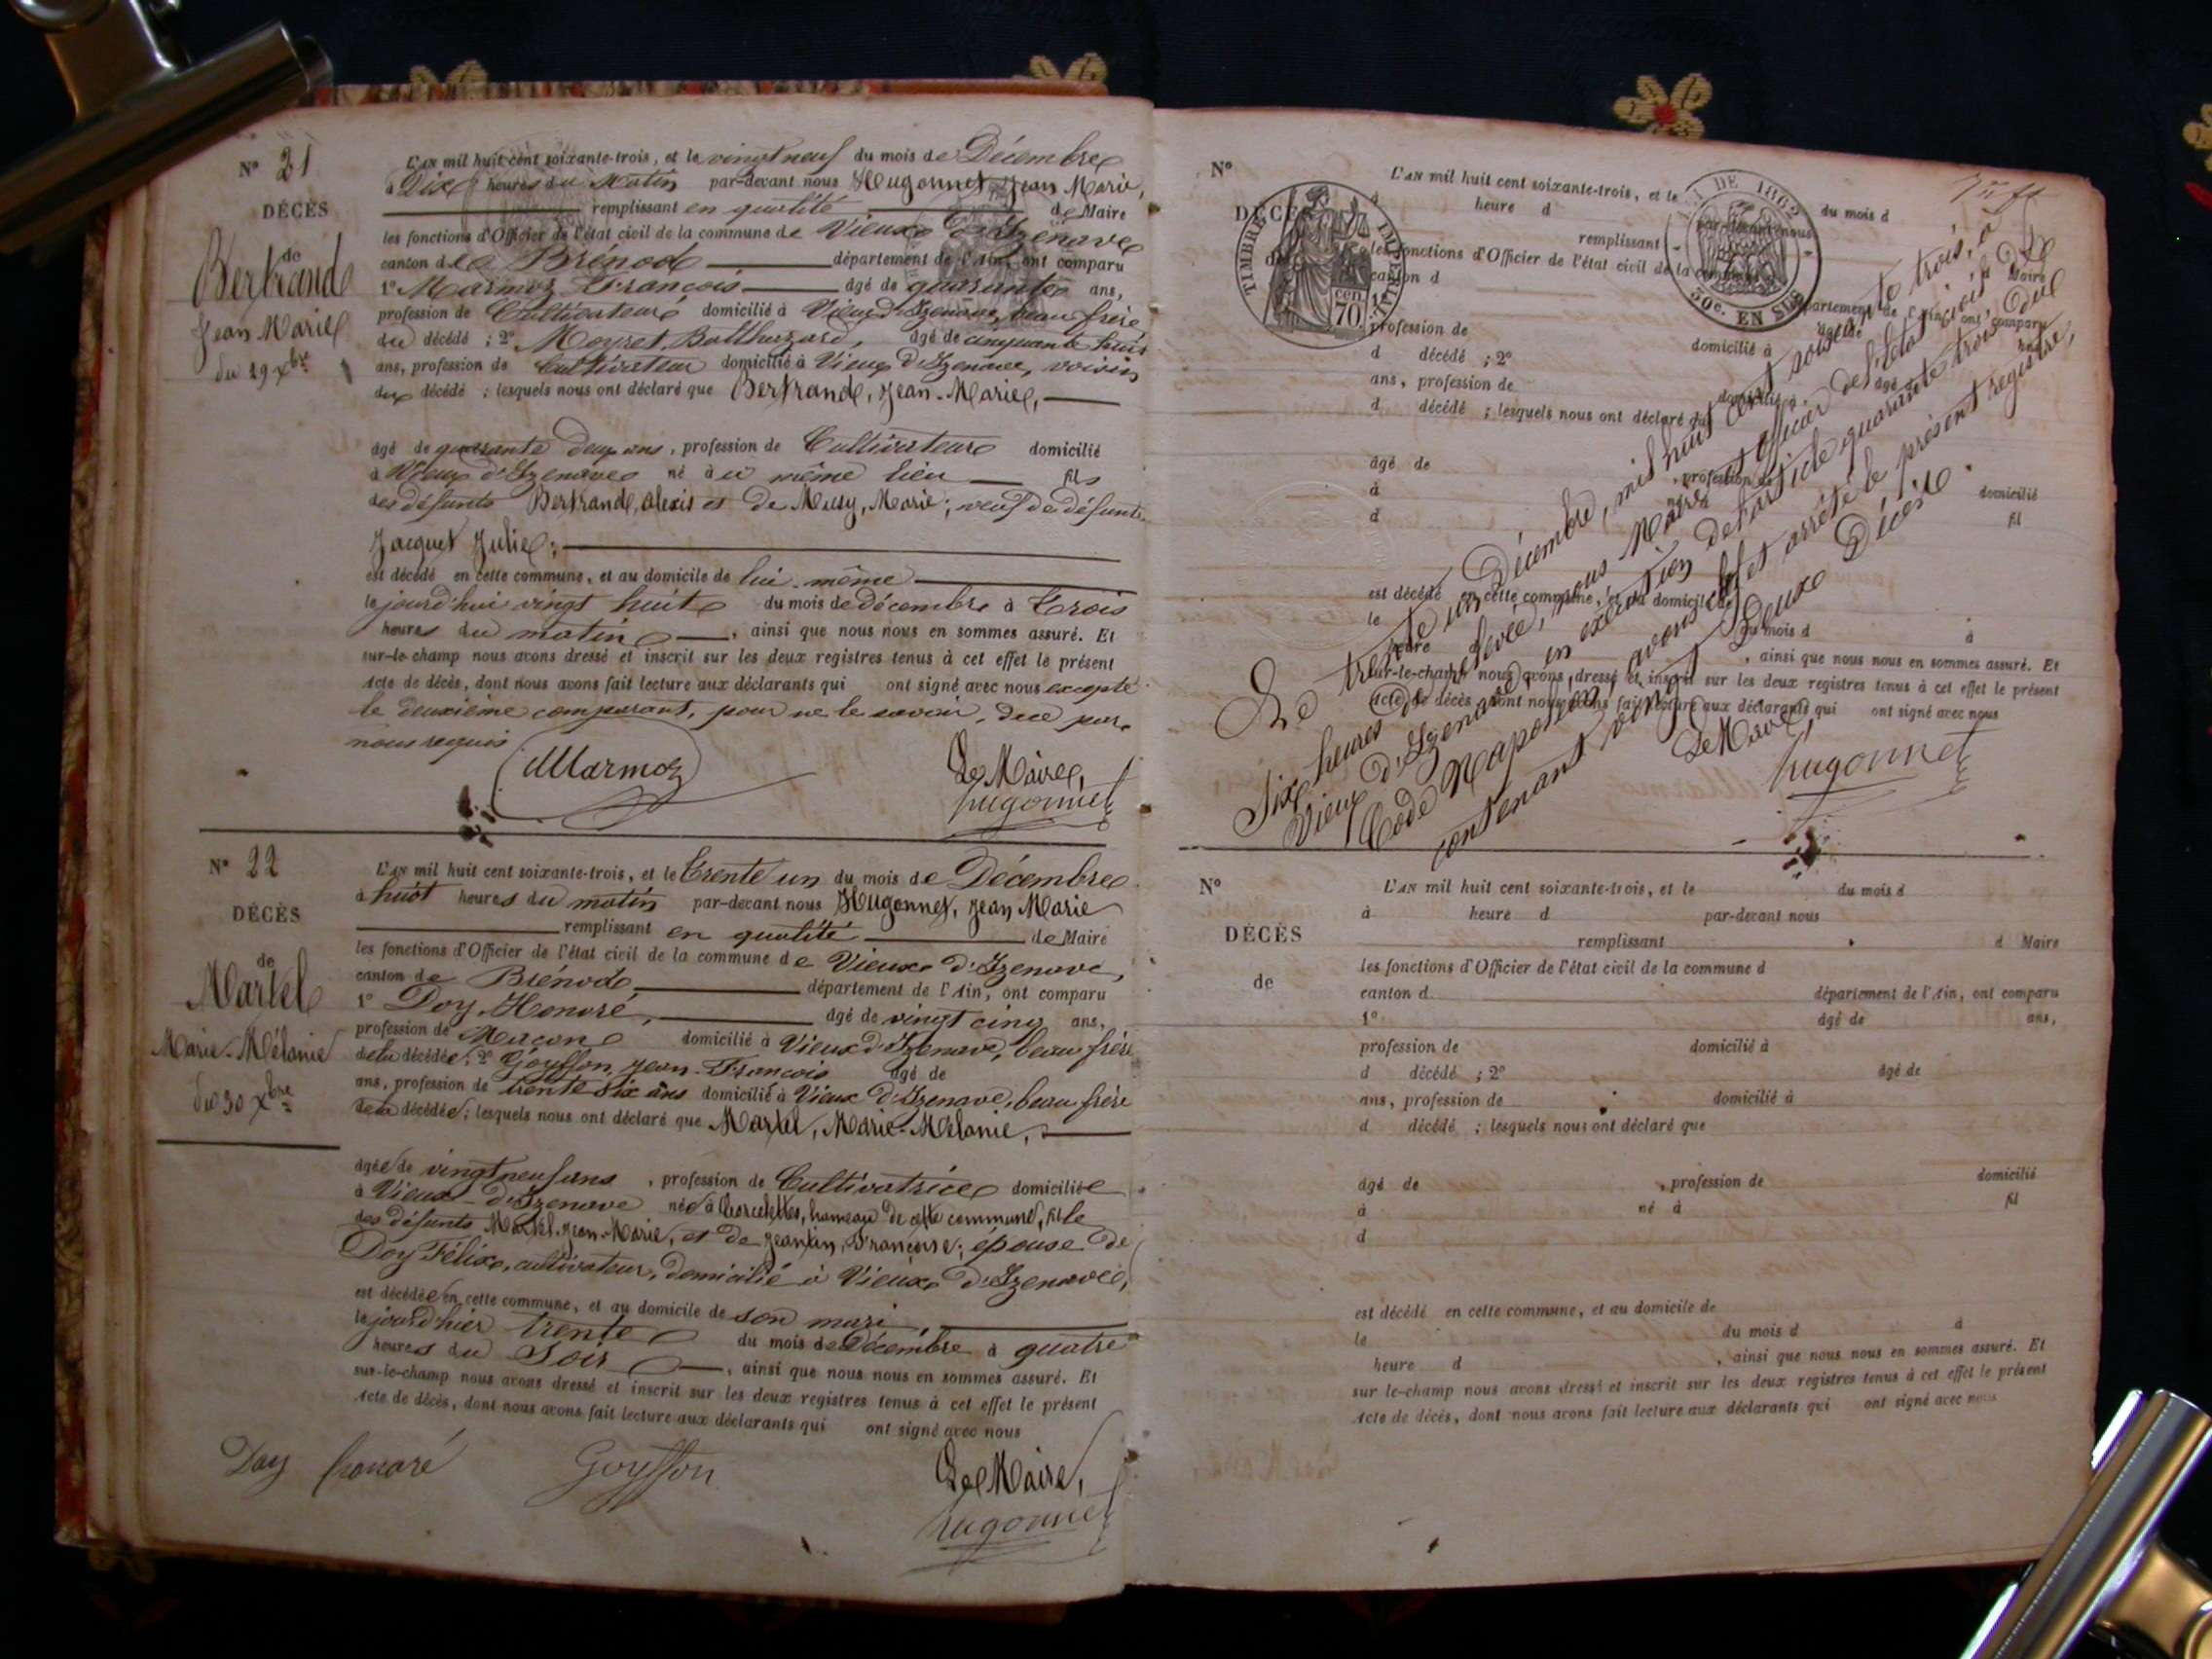 N° 21
DÉCÈS
de
Bertrand
Jean Marie
du 29 Xbre
L'AN mil huit cent soixante-trois, et le vingt neuf du mois de Décembre
à Dix heures du Matin par-devant nous Hugonnet Jean Marie,
remplissant en qualité de Maire
les fonctions d'Officier de l'état civil de la commune de Vieux d'Izenave
canton de Brénod département de l'Ain, ont comparu
1° Marmoz François âgé de quarante ans,
profession de Cultivateur domicilié à Vieux d'Izenave, beau frère
du décédé ; 2° Moyret Balthazard, âgé de cinquante huit
ans, profession de Cultivateur domicilié à Vieux d'Izenave, voisin
du décédé ; lesquels nous ont déclaré que Bertrand, Jean-Marie,
âgé de quarante deux ans, profession de Cultivateur domicilié
à Vieux d'Izenave né à u même lieu fils
des défunts Bertrand, Alexis et de Mussy, Marie ; veuf de défunte
Jacquet Julie ;
est décédé en cette commune, et au domicile de lui même
le jourd'hui vingt huit du mois de décembre à trois
heures du matin, ainsi que nous nous en sommes assuré. Et
sur-le-champ nous avons dressé et inscrit sur les deux registres tenus à cet effet le présent
Acte de décès, dont nous avons fait lecture aux déclarants qui ont signé avec nous excepté
le deuxième comparant, pour ne le savoir, de ce par
nous requis
Marmoz
Le Maire,
hugonnet
N° 22
DÉCÈS
de
Martel
Marie-Mélanie
du 30 Xbre
L'AN mil huit cent soixante-trois, et le trente un du mois de Décembre
à huit heures du matin par-devant nous Hugonnet, Jean Marie
remplissant en qualité de Maire
les fonctions d'Officier de l'état civil de la commune de Vieux d'Izenave,
canton de Brénod département de l'Ain, ont comparu
1° Doy, Honoré, âgé de vingt cinq ans,
profession de Maçon domicilié à Vieux d'Izenave, beau frère
de la décédée ; 2° Goyffon, Jean-François âgé de
ans, profession de trente six ans domicilié à Vieux d'Izenave, beau frère
de la décédée ; lesquels nous ont déclaré que Martel, Marie-Mélanie,
âgée de vingt neuf ans, profession de Cultivatrice domiciliée
à Vieux d'Izenave née à Corcelettes, hameau de cette commune, fille
des défunts Martel, Jean-Marie, et de Jeantin, Françoise ; épouse de
Doy Félix, cultivateur, domicilié à Vieux d'Izenave,
est décédée en cette commune, et au domicile de son mari,
le jourd'hier trente du mois de Décembre à quatre
heures du Soir, ainsi que nous nous en sommes assuré. Et
sur-le-champ nous avons dressé et inscrit sur les deux registres tenus à cet effet le présent
Acte de décès, dont nous avons fait lecture aux déclarants qui ont signé avec nous
Doy honoré
Goyffon
Le Maire,
hugonnet
N°
DÉCÈS
TIMBRE IMPERIAL
cen 70
DE 1862
30c. EN SUS
L'AN mil huit cent soixante-trois, et le du mois d
à heure d par-devant nous
remplissant Maire
les fonctions d'Officier de l'état civil de la commune
canton d département de l'Ain, ont comparu
profession de domicilié à
d décédé ; 2° âgé
ans, profession de domicilié à
d décédé ; lesquels nous ont déclaré que
âgé de profession de domicilié
à né à fil
d
est décédé en cette commune, et au domicile de
le du mois d à
heure, ainsi que nous nous en sommes assuré. Et
sur-le-champ nous avons dressé et inscrit sur les deux registres tenus à cet effet le présent
Acte de décès, dont nous avons fait lecture aux déclarants qui ont signé avec nous
Le trente un Décembre, mil huit cent soixante trois, à
Six heures du , nous Maire et Officier de l'état civil de
Vieux d'Izenave, en exécution de l'article quarante trois du
Code Napoléon, avons clos et arrêté le présent registre,
contenant vingt Deux Décès.
Le Maire,
hugonnet
N°
DÉCÈS
de
L'AN mil huit cent soixante-trois, et le du mois d
à heure d par-devant nous
remplissant d Maire
les fonctions d'Officier de l'état civil de la commune d
canton d département de l'Ain, ont comparu
1° âgé de ans,
profession de domicilié à
d décédé ; 2° âgé de
ans, profession de domicilié à
d décédé ; lesquels nous ont déclaré que
âgé de , profession de domicilié
à né à fil
d
est décédé en cette commune, et au domicile de
le du mois d à
heure d , ainsi que nous nous en sommes assuré. Et
sur le-champ nous avons dressé et inscrit sur les deux registres tenus à cet effet le présent
Acte de décès, dont nous avons fait lecture aux déclarants qui ont signé avec nous